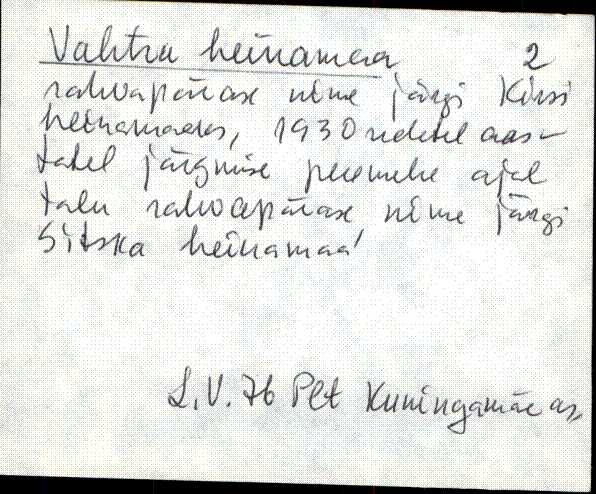 Vahtra heinamaa 2
rahvapärase nime järgi Kirsi
heinamaaks, 1930ndatel aas-
tatel järgmise peremehe ajal
talu rahvapärase nime järgi
Sitska heinamaa'
L.V. 76 Plt Kuningamäe as.